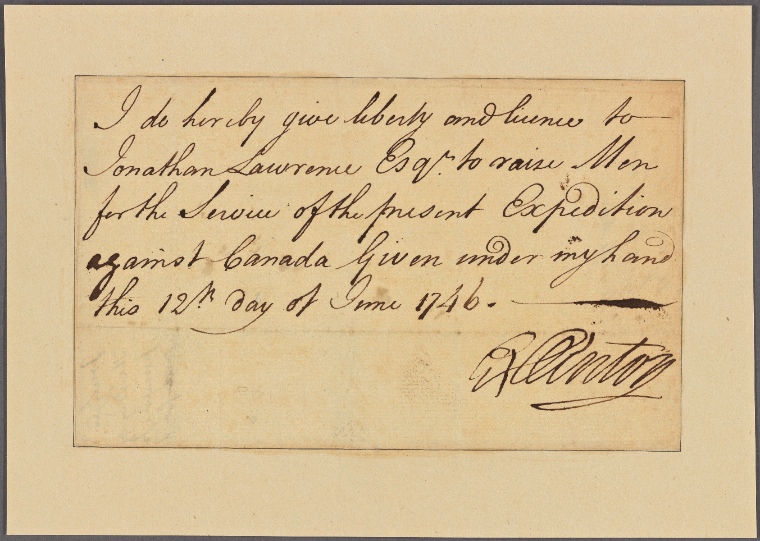 I do hereby give liberty and licence to
Jonathan Lawrence Esqr. to raise Men
for the Service of the present Expedition
against Canada Given under my hand
this 12th day of June 1746.
G Clinton